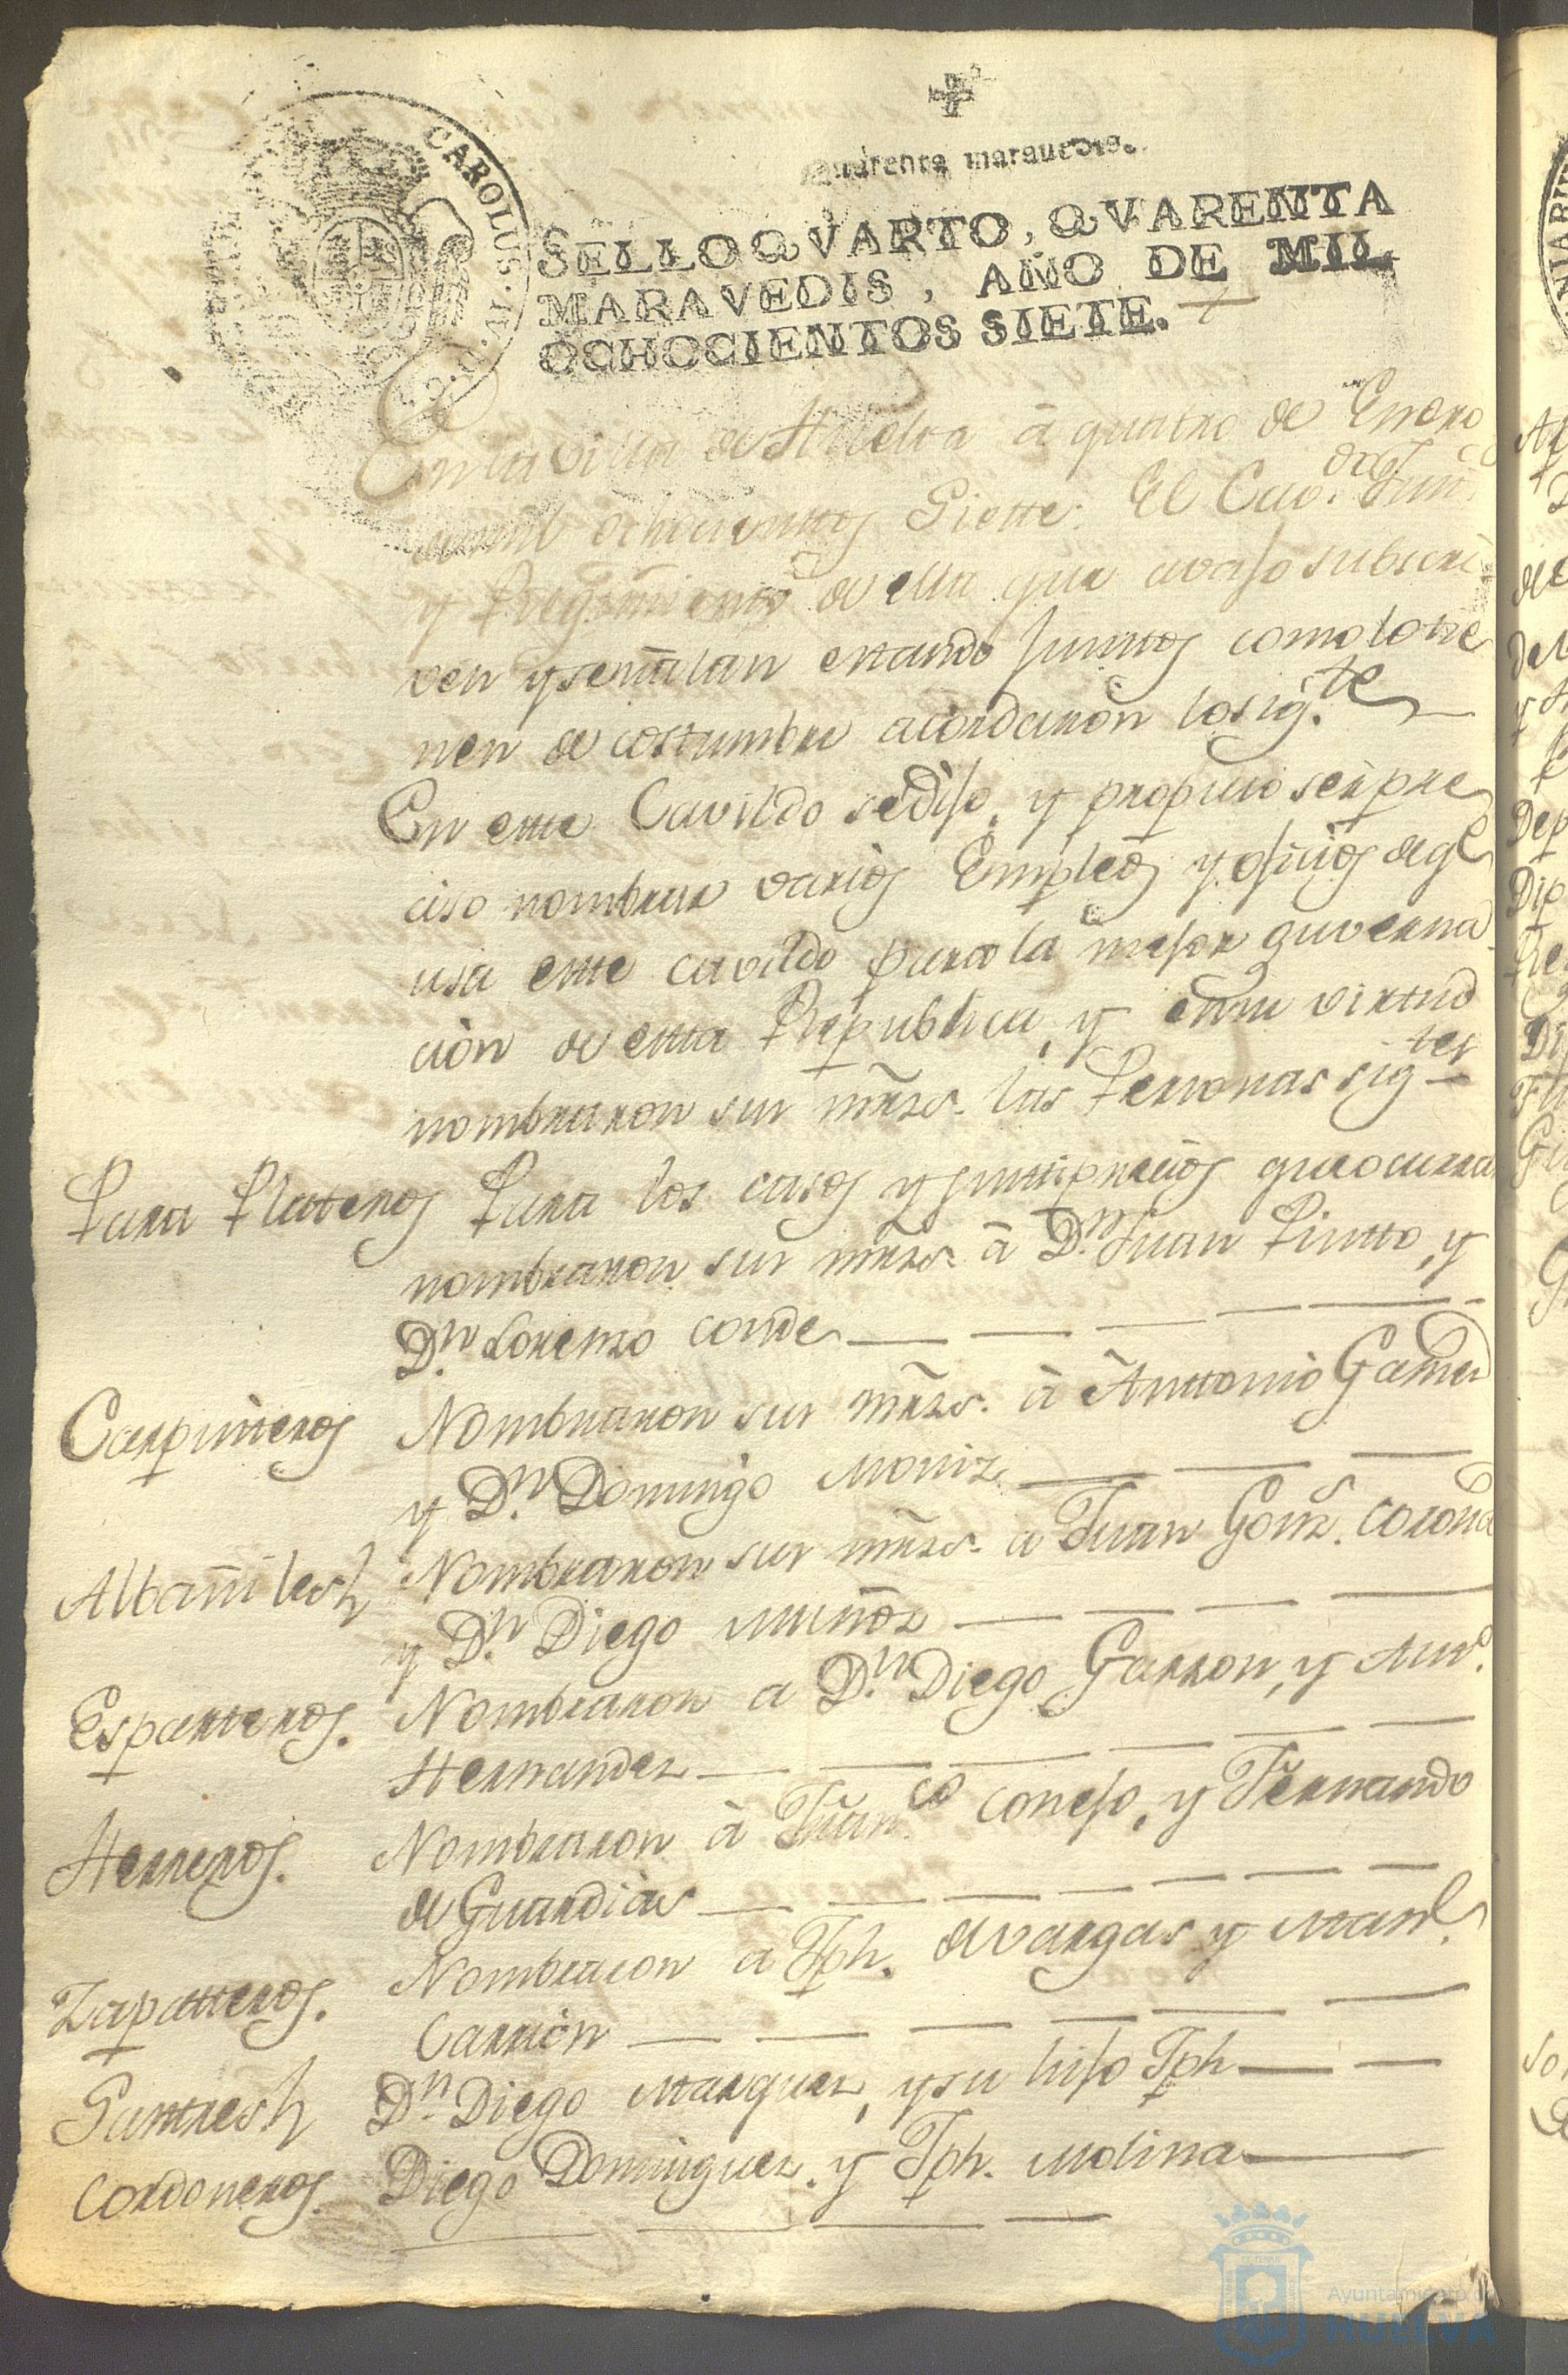 Quarenta marauedis.
SELLO QVARTO, QVARENTA
MARAVEDIS, AÑO DE MIL
OCHOCIENTOS SIETE.
CAROLUS IV
En la Villa de Huelva â quatro de Enero
de mil ochocienttos Siette: El Cav.do Just.a
y Regimientto de ella que avajo subscri
ven y señalan estando Junttos como lo tie
nen de costumbre acordaron lo sig.te
En este Cavildo se dijo, y propuso ser pre
ciso nombrar varios Empleos y oficios de q.e
usa este cavildo para la mejor guverna
ción de esta Republica, y en su virtud
nombraron sus mrzs. las Personas sig.tes
Para Plateros Para los casos y justtiprecios que ocurra
nombraron sus mrzs. â D.n Juan Pintto, y
D.n Lorenzo Conde
Carpinteros Nombraron sus mrzs. à Anttonio Gamez
y D.n Domingo Moniz
Albañiles Nombraron sus mrzs. a Juan Gonz.s Corona
y D.n Diego Muñoz
Esparteros. Nombraron a D.n Diego Garzon, y
Hernandez
Herreros. Nombraron à Fran.co Conejo, y Fernando
de Guardias
Zapatteros. Nombraron a Jph. de Vargas y Man.l
Carrión
Sastres D.n Diego Marquez, y su hijo Jph
Cordoneros. Diego Dominguez. y Jph. Molina
Ayuntamiento de
HUELVA